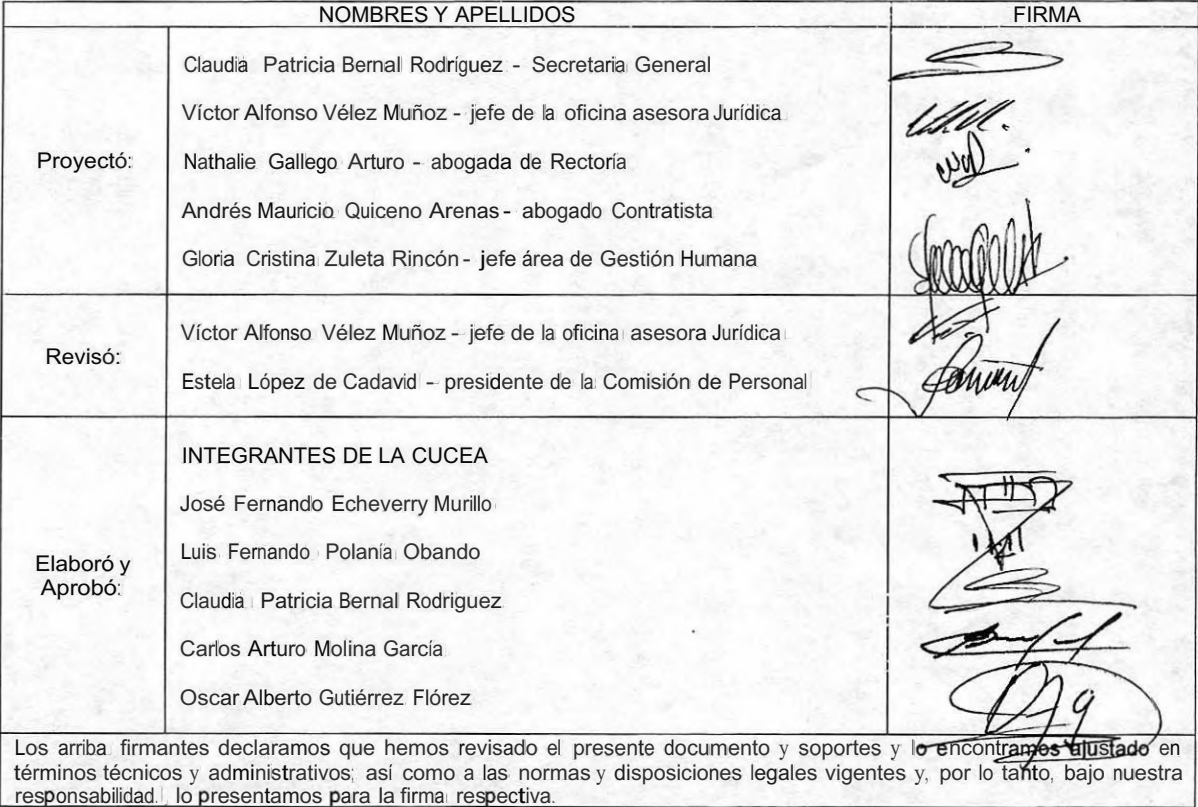 NOMBRES Y APELLIDOS FIRMA
Proyectó:
Claudia Patricia Bernal Rodríguez - Secretaria General
Víctor Alfonso Vélez Muñoz - jefe de la oficina asesora Jurídica
Nathalie Gallego Arturo - abogada de Rectoría
Andrés Mauricio Quiceno Arenas - abogado Contratista
Gloria Cristina Zuleta Rincón - jefe área de Gestión Humana
Revisó:
Víctor Alfonso Vélez Muñoz - jefe de la oficina asesora Jurídica
Estela López de Cadavid - presidente de la Comisión de Personal
Elaboró y
Aprobó:
INTEGRANTES DE LA CUCEA
José Fernando Echeverry Murillo
Luis Fernando Polanía Obando
Claudia Patricia Bernal Rodriguez
Carlos Arturo Molina García
Oscar Alberto Gutiérrez Flórez
Los arriba firmantes declaramos que hemos revisado el presente documento y soportes y lo encontramos ajustado en
términos técnicos y administrativos; así como a las normas y disposiciones legales vigentes y, por lo tanto, bajo nuestra
responsabilidad. lo presentamos para la firma respectiva.